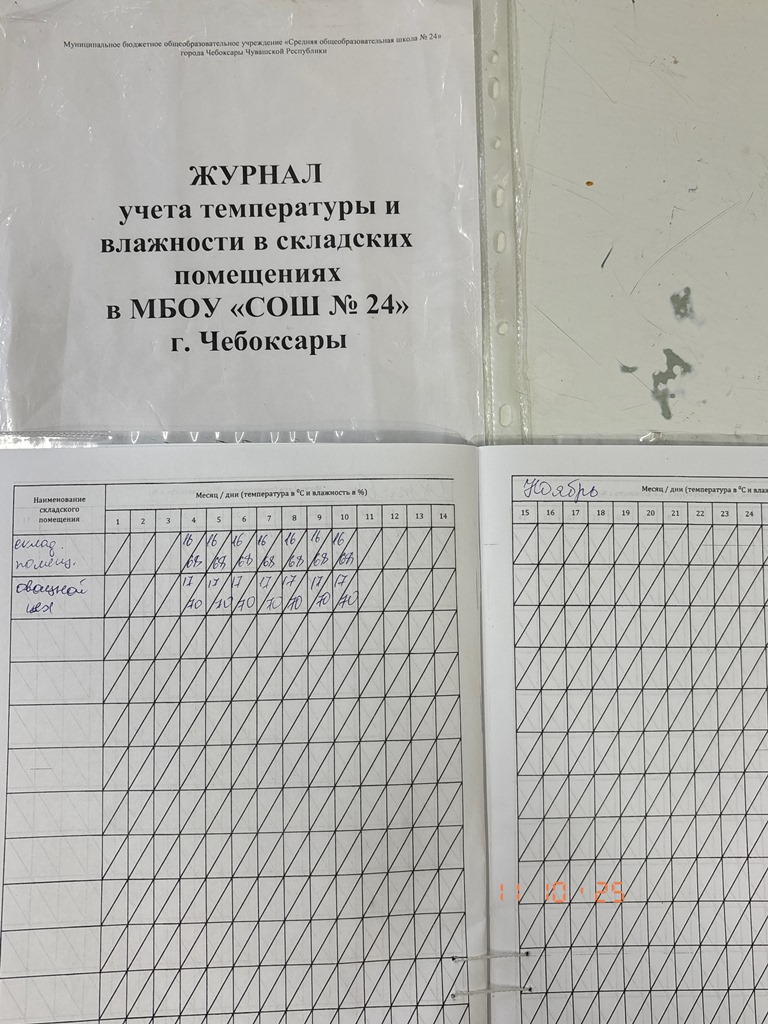 Муниципальное бюджетное общеобразовательное учреждение «Средняя общеобразовательная школа № 24»
города Чебоксары Чувашской Республики
ЖУРНАЛ
учета температуры и
влажности в складских
помещениях
в МБОУ «СОШ № 24»
г. Чебоксары
Наименование
складского
помещения
Месяц / дни (температура в °С и влажность в %)
1 2 3 4 5 6 7 8 9 10 11 12 13 14
склад. 16 16 16 16 16 16 16
помещ. 68 68 68 68 68 68 68
овощной 17 17 17 17 17 17 17
цех 70 70 70 70 70 70 70
Ноябрь Месяц / дни (температура в °С и вла
15 16 17 18 19 20 21 22 23 24
11 10 '25